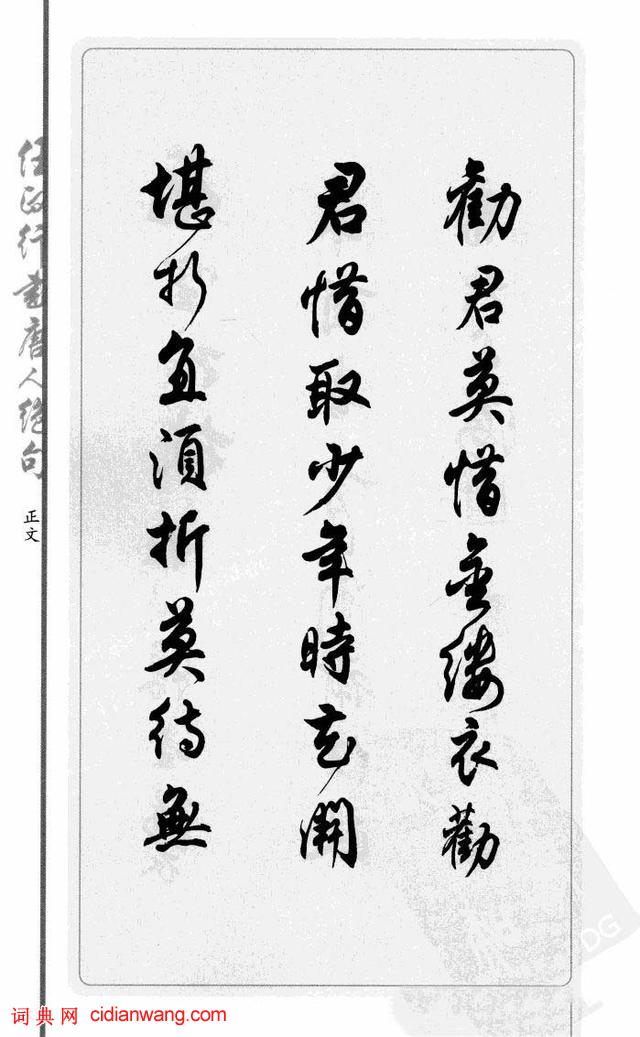 勸君莫惜金縷衣勸
君惜取少年時花開
堪折直須折莫待無
任政行書唐人絕句
正文
词典网 cidianwang.com